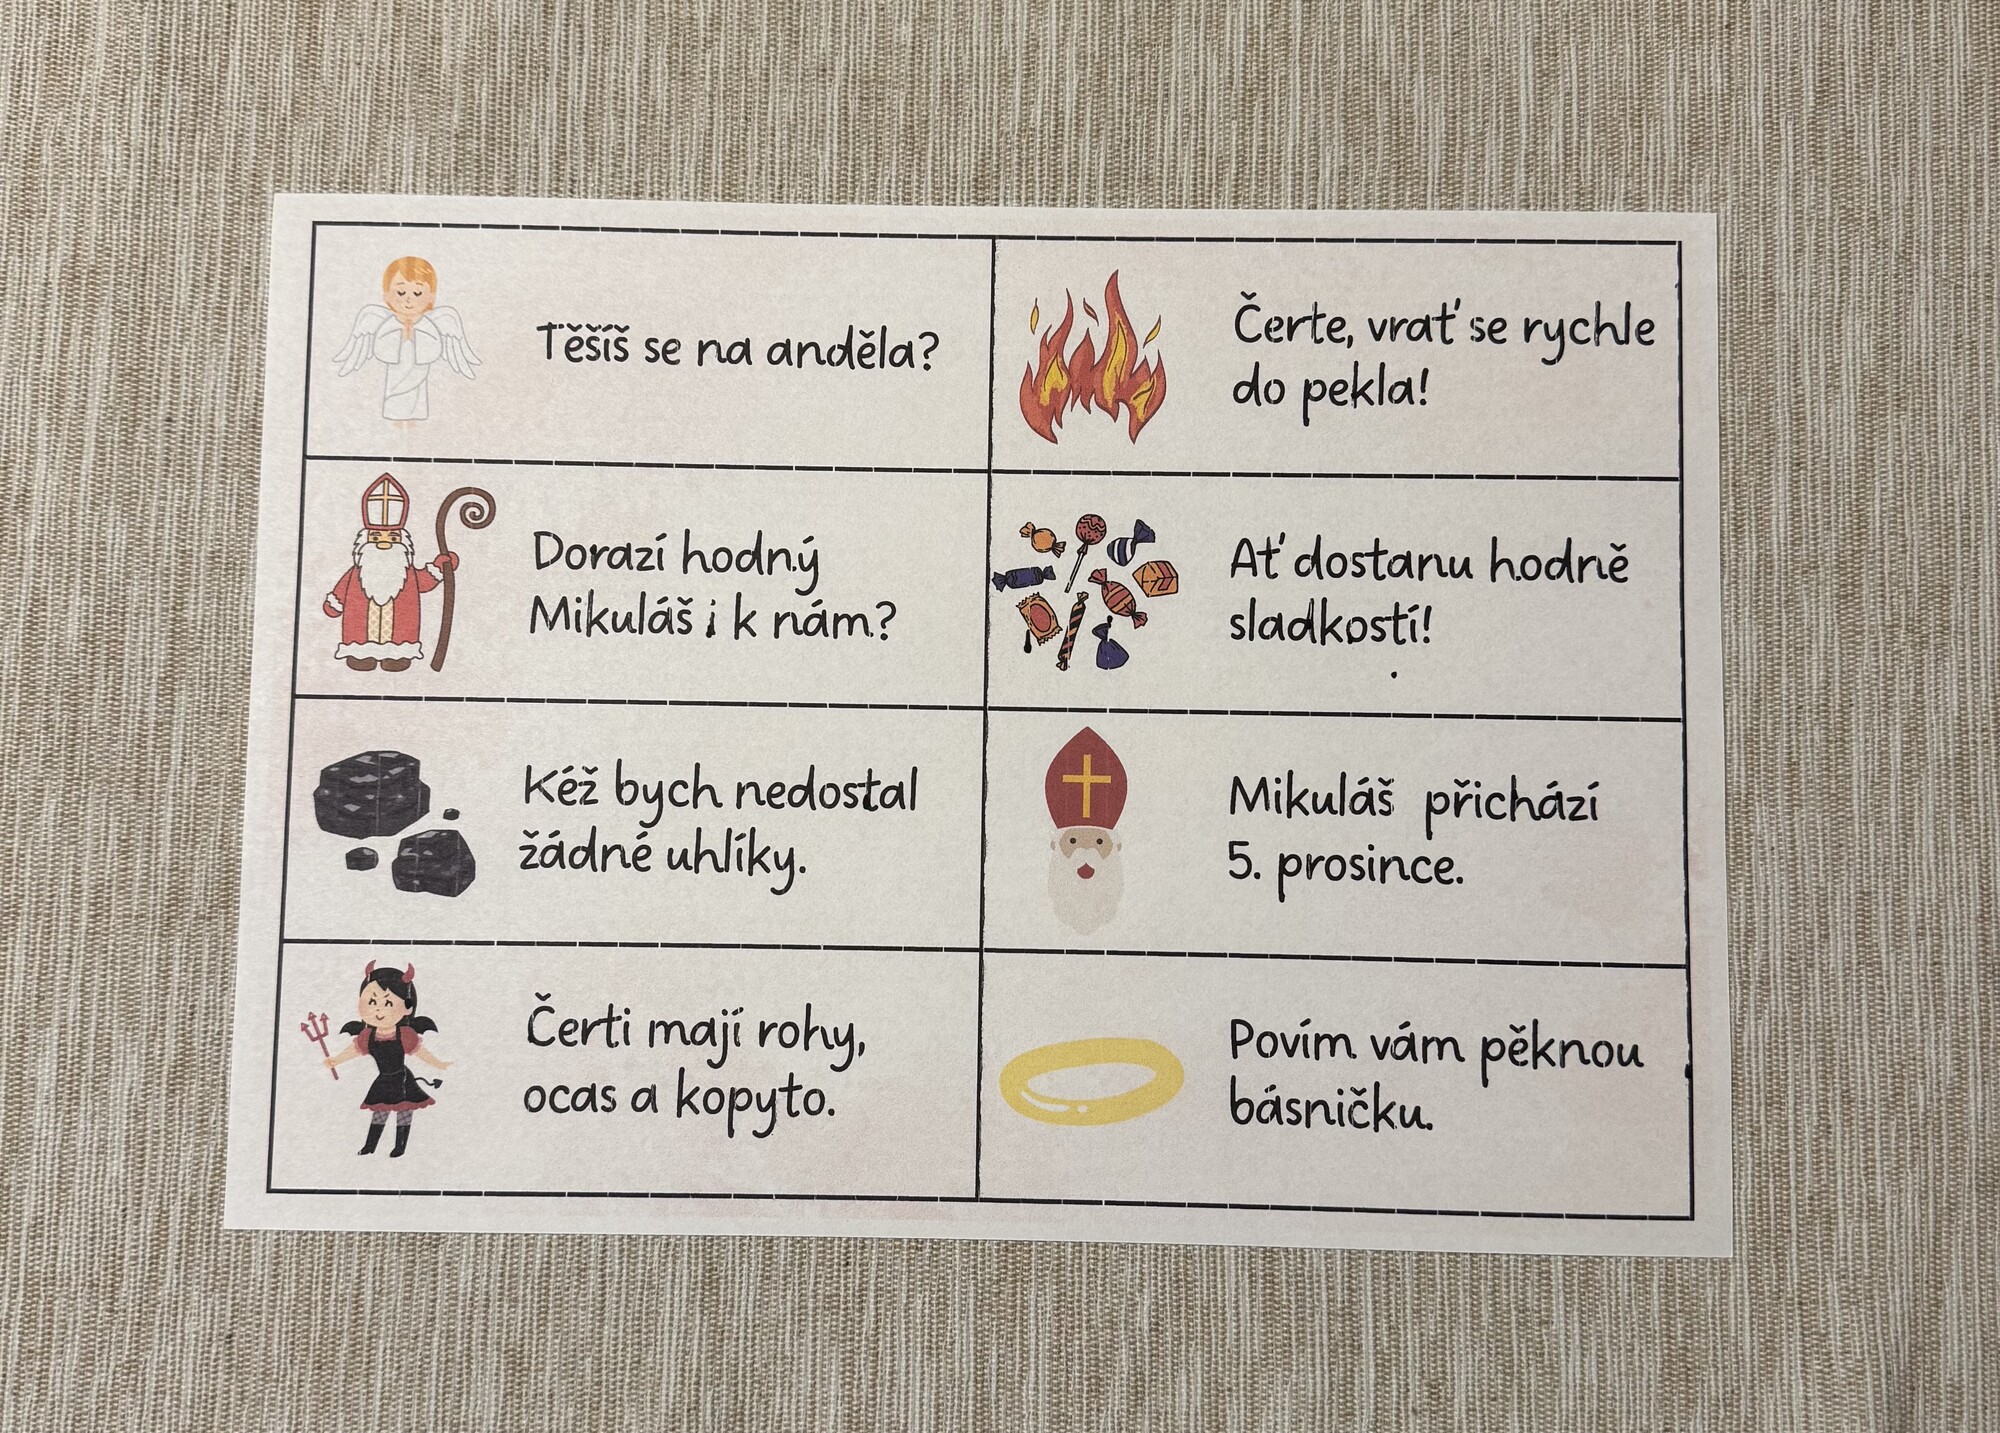 Těšíš se na anděla?
Čerte, vrať se rychle
do pekla!
Dorazí hodný
Mikuláš i k nám?
Ať dostanu hodně
sladkostí!
Kéž bych nedostal
žádné uhlíky.
Mikuláš přichází
5. prosince.
Čerti mají rohy,
ocas a kopyto.
Povím vám pěknou
básničku.